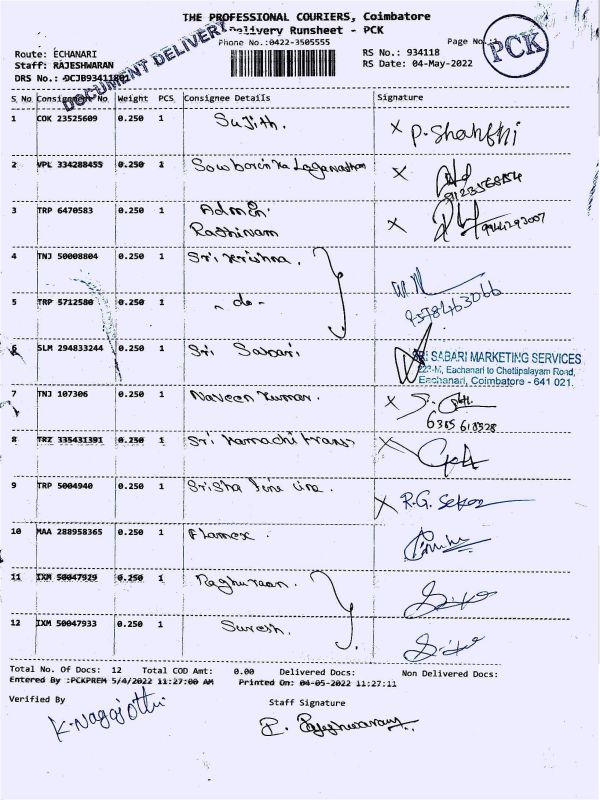 THE PROFESSIONAL COURIERS, Coimbatore
Delivery Runsheet - PCK
Phone No.:0422-3505555
Page No.:1
PCK
DOCUMENT DELIVERY
Route: ECHANARI
Staff: RAJESHWARAN
DRS No.: DCJB93411801
RS No.: 934118
RS Date: 04-May-2022
S No Consignment No Weight PCS Consignee Details Signature
1 COK 23525609 0.250 1 Sujith. X P. Shanthi
2 VPL 334288455 0.250 1 Loganathan X
3 TRP 6470583 0.250 1 Admin
Rathinam X
4 TNJ 50008804 0.250 1 Sri Krishna.
5 TRP 5712580 0.250 1 - do - 9578463066
6 SLM 294833244 0.250 1 Sri Sabari
SRI SABARI MARKETING SERVICES
223-M, Eachanari to Chettipalayam Road,
Eachanari, Coimbatore - 641 021.
7 TNJ 107306 0.250 1 Naveen Kumar. X
8 TRZ 335431391 0.250 1 Sri Kamachi Trans X
9 TRP 5004940 0.250 1 X R.G. Sekar
10 MAA 288958365 0.250 1 Flamex.
11 IXM 50047929 0.250 1 Raghuraan.
12 IXM 50047933 0.250 1 Suresh.
Total No. Of Docs: 12 Total COD Amt: 0.00 Delivered Docs: Non Delivered Docs:
Entered By :PCKPREM 5/4/2022 11:27:00 AM Printed On: 04-05-2022 11:27:11
Verified By Staff Signature
K. Nagajothi P. Rajeshwaran